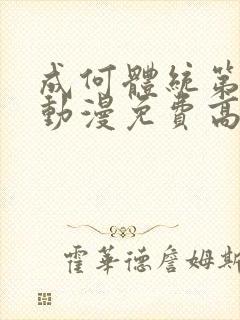 成何體統第
動漫免費高
霍華德詹姆斯